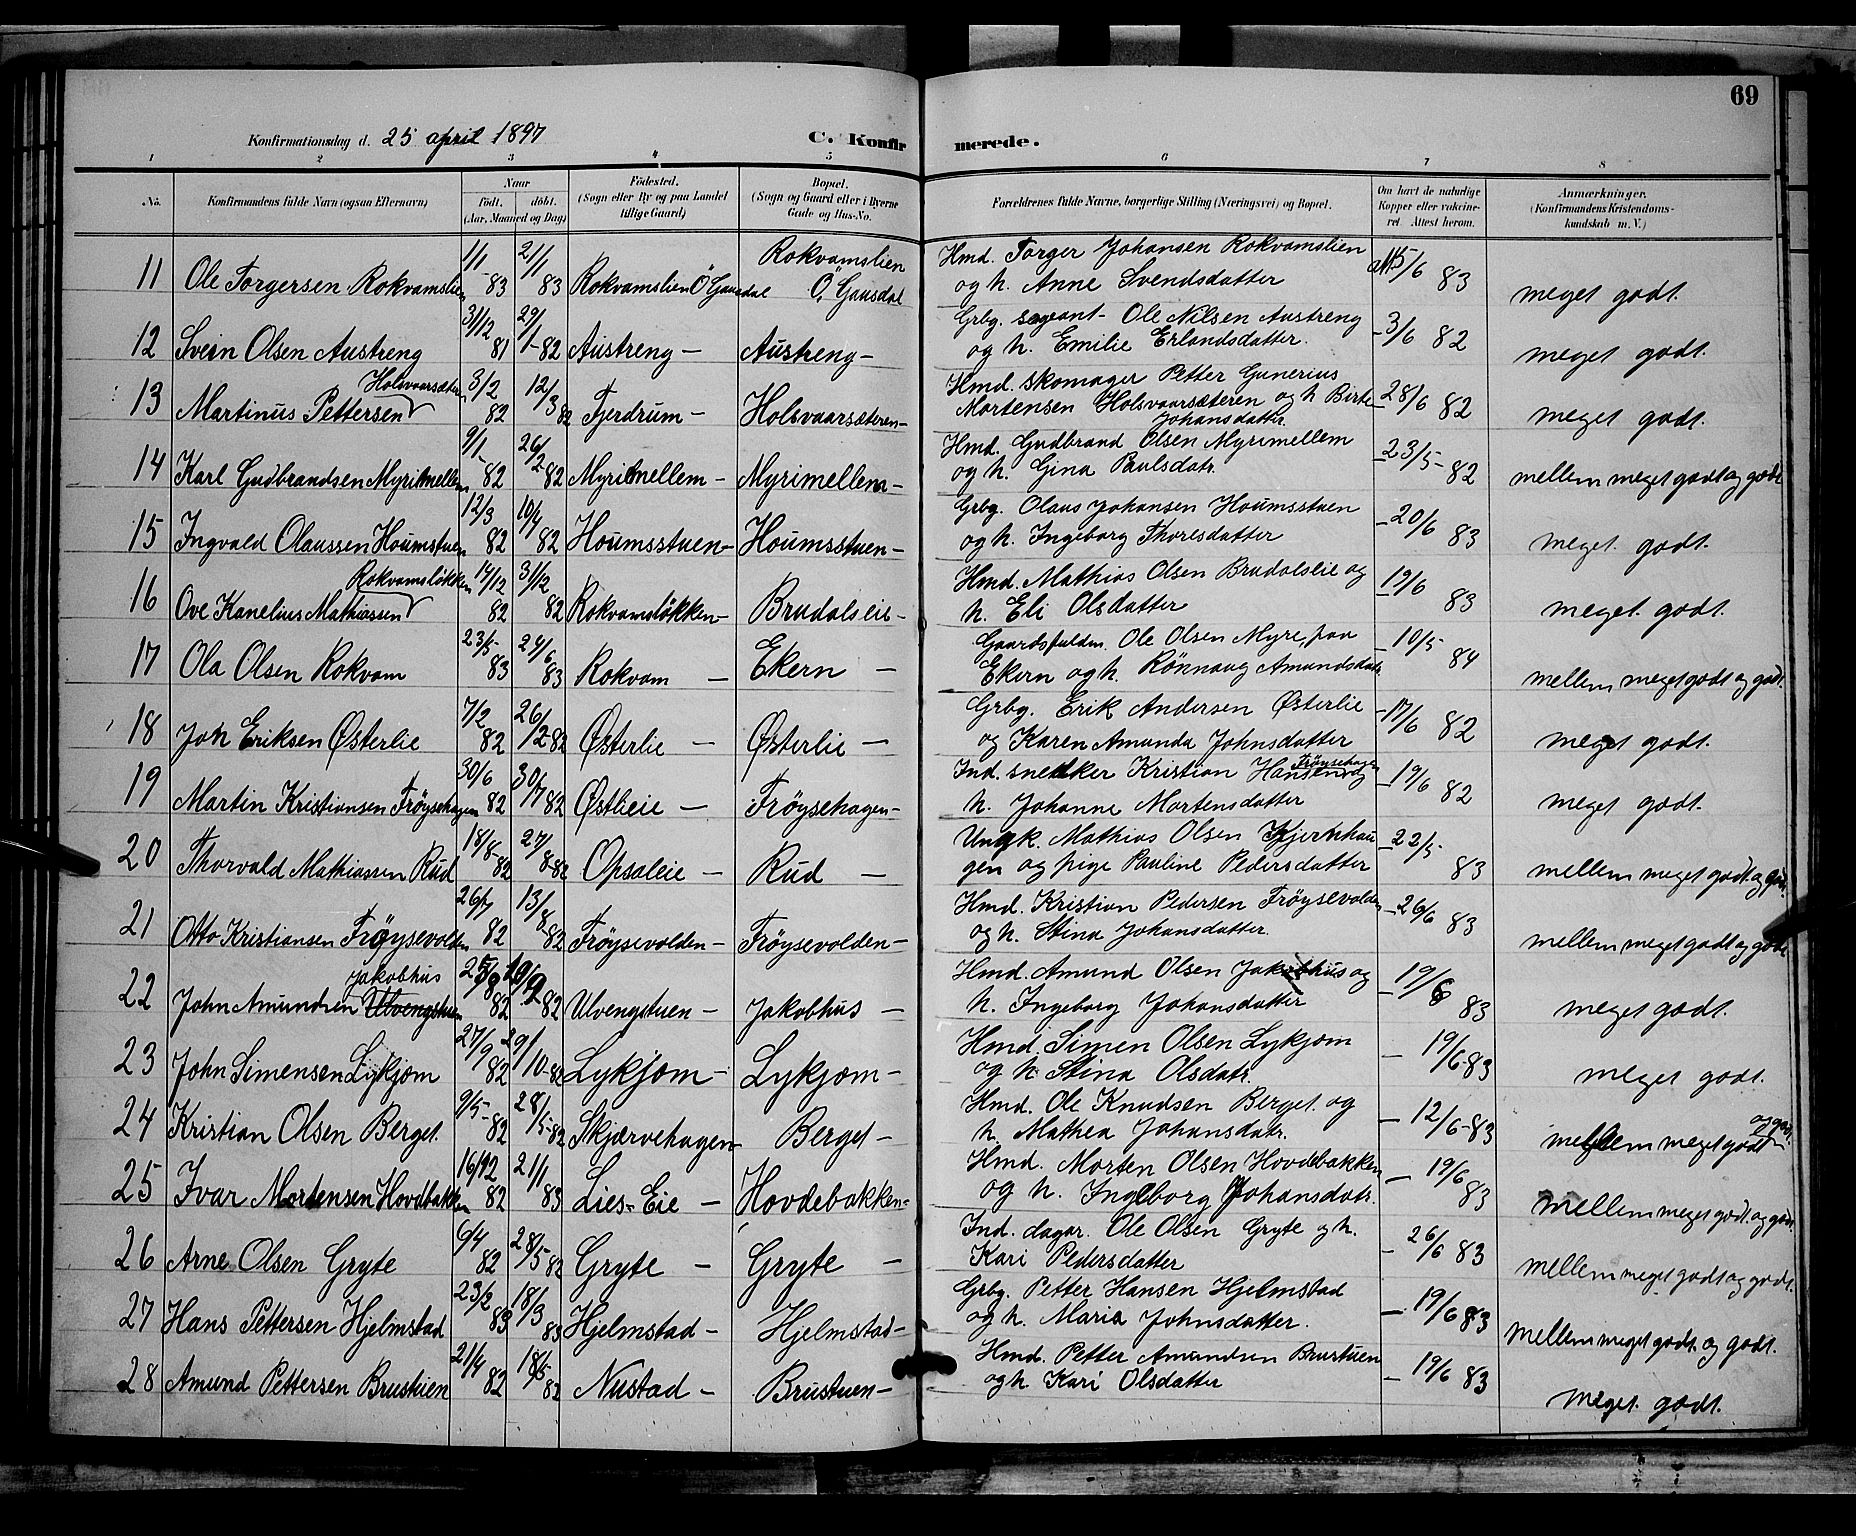 69
Konfirmationsdag d. 25 april 1897 C. Konfirmerede.
1 2 3 4 5 6 7 8
No. Konfirmandens fulde Navn (ogsaa Efternavn) Naar Født. døbt. (Aar, Maaned og Dag) Fødested. (Sogn eller By og paa Landet tillige Gaard) Bopæl. (Sogn og Gaard eller i Byerne Gade og Hus-No. Forældrenes fulde Navne, borgerlige Stilling (Næringsvei) og Bopæl. Om havt de naturlige Kopper eller vakcineret. Attest herom. Anmærkninger. (Konfirmandens Kristendomskundskab m. V.)
11 Ole Torgersen Rokvamslien 1/1 83 21/1 83 Rokvamslien Ö Gausdal Rokvamslien Ö. Gausdal Hmd. Torger Johansen Rokvamslien
og h. Anne Svendsdatter att 5/6 83 meget godt.
12 Svein Olsen Austreng 31/12 81 29/1 82 Austreng – Austreng – Grbg. sageant Ole Nilsen Austreng
og h. Emilie Erlandsdatter. – 3/6 82 meget godt.
13 Martinus Pettersen Holsvaarsæteren 3/2 82 12/3 82 Fjerdrum – Holsvaarsæteren – Hmd. skomager Petter Gunerius
Mortensen Holsvaarsæteren og h Birte
Johansdatter – 28/6 82 meget godt.
14 Karl Gudbrandsen Myrimellem 9/1 82 26/2 82 Myrimellem – Myrimellem – Hmd. Gudbrand Olsen Myrimellem
og h. Gina Paulsdatr. – 23/5 82 mellem meget godt og godt
15 Ingvald Olaussen Houmstuen 12/3 82 10/4 82 Houmsstuen – Houmsstuen – Grbg. Olaus Johansen Houmsstuen
og h. Ingeborg Thoresdatter – 20/6 83 meget godt.
16 Ove Kanelius Mathiassen Rokvamsløkken 14/12 82 31/12 82 Rokvamsløkken – Brudalseie – Hmd. Mathias Olsen Brudalseie og
h. Eli Olsdatter – 19/6 83 meget godt.
17 Ola Olsen Rokvam 23/5 83 24/6 83 Rokvam – Ekern – Gaardsfuldm. Ole Olsen Myre, paa
Ekern og h. Rönnaug Amundsdatr – 10/5 84 mellem meget godt og godt.
18 Joh Eriksen Østerlie 7/2 82 26/2 82 Østerlie – Østerlie – Grbg. Erik Andersen Østerlie
og Karen Amunda Johnsdatter – 17/6 82 meget godt.
19 Martin Kristiansen Fröysehagen 30/6 82 30/7 82 Østlieie – Fröysehagen – Ind. snedker Kristian Hansen Fröysehagen og
h. Johanne Mortensdatter – 19/6 82 meget godt.
20 Thorvald Mathiassen Rud 18/8 82 27/8 82 Opsaleie – Rud – Ungk. Mathias Olsen Kjernhau
gen og pige Pauline Pedersdatter – 22/5 83 mellem meget godt og godt.
21 Otto Kristiansen Fröysevolden 26/7 82 13/8 82 Fröysevolden – Fröysevolden – Hmd. Kristian Pedersen Fröysevolden
og h. Stina Johansdatter. – 26/6 83 mellem meget godt og godt
22 John Amundsen Ulvengstuen Jakobhus 25/8 82 10/9 82 Ulvengstuen – Jakobhus – Hmd. Amund Olsen Jakobhus og
h. Ingeborg Johansdatter – 19/6 83 meget godt.
23 John Simensen Lykjom 27/9 82 29/10 82 Lykjom – Lykjom – Hmd. Simen Olsen Lykjom
og h. Stina Olsdatr. – 19/6 83 meget godt.
24 Kristian Olsen Berget 9/5 82 28/5 82 Skjærvehagen Berget – Hmd. Ole Knudsen Berget og
h. Mathea Johansdatr. – 12/6 83 mellem meget godt og godt.
25 Ivar Mortensen Hovdbakken 16/12 82 21/1 83 Lies-Eie – Hovdebakken – Hmd. Morten Olsen Hovdebakken
og h. Ingeborg Johansdatr. – 19/6 83 mellem meget godt og godt.
26 Arne Olsen Gryte 6/4 82 28/5 82 Gryte – Gryte – Ind. dagar. Ole Olsen Gryte og h.
Kari Pedersdatter – 26/6 83 mellem meget godt og godt.
27 Hans Pettersen Hjelmstad 23/2 83 18/3 83 Hjelmstad – Hjelmstad – Grbg. Petter Hansen Hjelmstad
og h. Maria Johnsdatter. – 19/6 83 mellem meget godt og godt.
28 Amund Pettersen Brustuen 21/4 82 18/5 82 Nustad – Brustuen – Hmd. Petter Amundsen Brustuen
og h Kari Olsdatter – 19/6 83 meget godt.